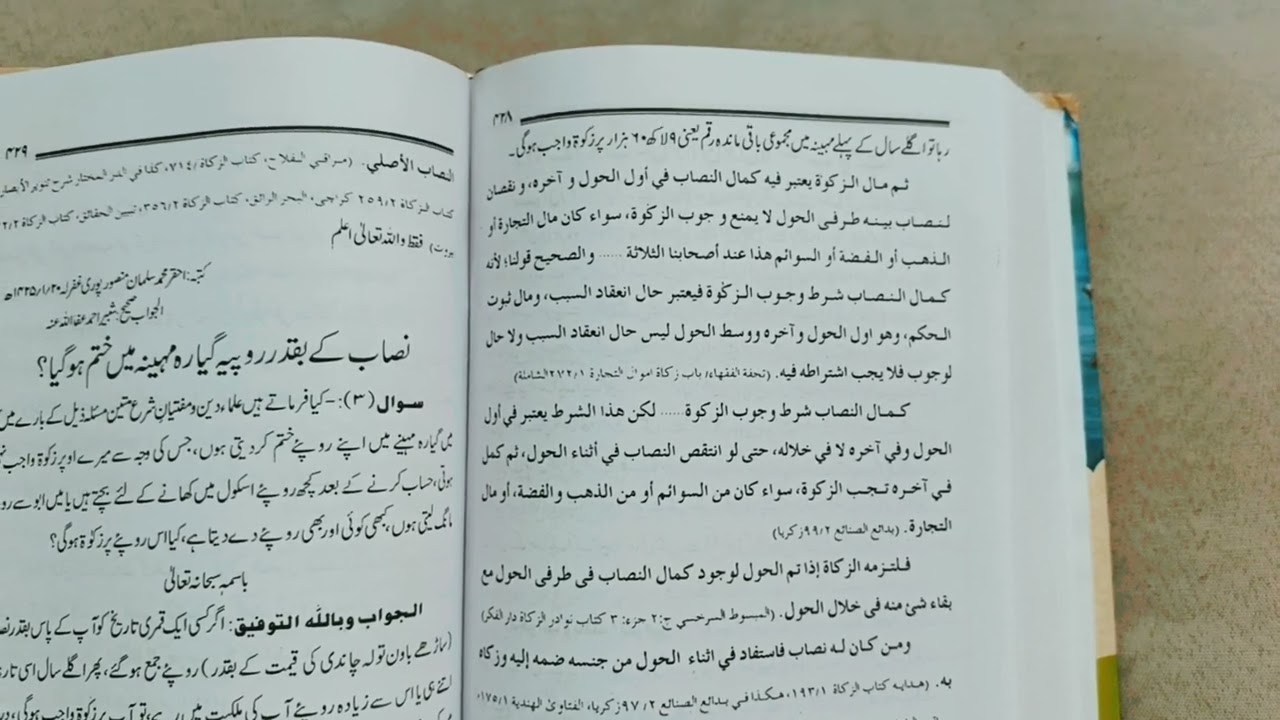 ۴۲۸
رہا تو اگلے سال کے پہلے مہینہ میں مجموعی باقی ماندہ رقم یعنی ۹ لاکھ ۶۰ ہزار پر زکوۃ واجب ہوگی۔
ثم مال الزکوة يعتبر فيه كمال النصاب في أول الحول و آخره، و نقصان
لنصاب بينه طرفى الحول لا يمنع و جوب الزكوة، سواء كان مال التجارة أو
الذهب أو الفضة أو السوائم هذا عند أصحابنا الثلاثة ...... والصحيح قولنا؛ لأنه
كمال النصاب شرط وجوب الزكوة فيعتبر حال انعقاد السبب، ومال ثبوت
الحكم، وهو اول الحول و آخره ووسط الحول ليس حال انعقاد السبب ولا حال
لوجوب فلا يجب اشتراطه فيه. (تحفة الفقهاء/ باب زكاة اموال التجارة ۲۷۲/۱ الشاملة)
كمال النصاب شرط وجوب الزكوة ...... لكن هذا الشرط يعتبر في أول
الحول وفي آخره لا في خلاله، حتى لو انتقص النصاب في أثناء الحول، ثم كمل
في آخره تجب الزكوة، سواء كان من السوائم أو من الذهب والفضة، أو مال
التجارة. (بدائع الصنائع ۹۹/۲ زكريا)
فلتزمه الزكاة إذا تم الحول لوجود كمال النصاب فى طرفى الحول مع
بقاء شئ منه فى خلال الحول. (المبسوط السرخسي ج: ۲ جزء: ۳ كتاب نوادر الزكاة دار الفكر)
ومن كان له نصاب فاستفاد في اثناء الحول من جنسه ضمه إليه وزكاه
به. (هدايه كتاب الزكاة ۱۹۳/۱، هكذا في بدائع الصنائع ۹۷/۲ زكريا، الفتاوىٰ الهندية ۱۷۵/۱،
۴۲۹
النصاب الأصلي. (مراقي الفلاح، كتاب الزكاة/ ۷۱٤، كذا في الدر المختار شرح تنوير الأبصار
كتاب الزكاة ۲۵۹/۲ كراچی، البحر الرائق، كتاب الزكاة ۳۵٦/۲، تبيين الحقائق، كتاب الزكاة ۲/۲
فقط واللہ تعالیٰ اعلم
کتبہ: احقر محمد سلمان منصور پوری غفرلہ ۱۴۲۵/۱/۲۰ھ
الجواب صحیح: شبیر احمد عفا اللہ عنہ
نصاب کے بقدر روپیہ گیارہ مہینہ میں ختم ہوگیا؟
سوال (۳):- کیا فرماتے ہیں علماء دین و مفتیان شرع متین مسئلہ ذیل کے بارے میں
میں گیارہ مہینے میں اپنے روپئے ختم کردیتی ہوں، جس کی وجہ سے میرے اوپر زکوۃ واجب
ہوتی، حساب کرنے کے بعد کچھ روپئے اسکول میں کھانے کے لئے بچتے ہیں یا میں ابو سے
مانگ لیتی ہوں، کبھی کوئی اور بھی روپئے دے دیتا ہے، کیا اس روپئے پر زکوۃ ہوگی؟
باسمہ سبحانہ تعالیٰ
الجواب وباللہ التوفیق: اگر کسی ایک قمری تاریخ کو آپ کے پاس بقدر
(ساڑھے باون تولہ چاندی کی قیمت کے بقدر) روپئے جمع ہوگئے، پھر اگلے سال اسی
اتنے ہی یا اس سے زیادہ روپئے آپ کی ملکیت میں رہے، تو آپ پر زکوۃ واجب ہوگی،